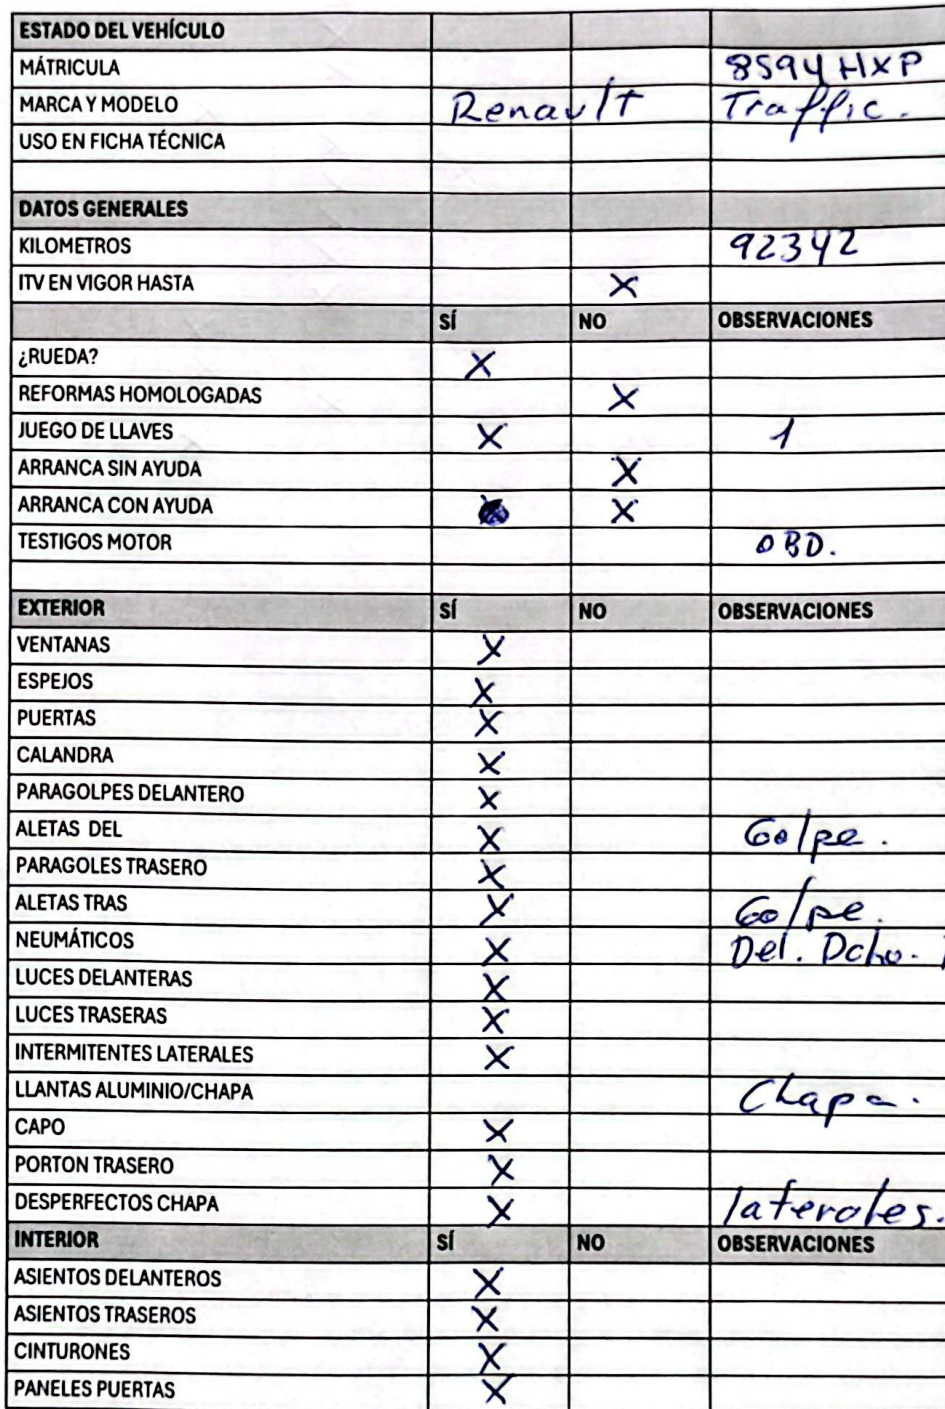 ESTADO DEL VEHÍCULO
MÁTRICULA 8594 HXP
MARCA Y MODELO Renault Traffic.
USO EN FICHA TÉCNICA
DATOS GENERALES
KILOMETROS 92342
ITV EN VIGOR HASTA X
SÍ NO OBSERVACIONES
¿RUEDA? X
REFORMAS HOMOLOGADAS X
JUEGO DE LLAVES X 1
ARRANCA SIN AYUDA X
ARRANCA CON AYUDA X
TESTIGOS MOTOR OBD.
EXTERIOR SÍ NO OBSERVACIONES
VENTANAS X
ESPEJOS X
PUERTAS X
CALANDRA X
PARAGOLPES DELANTERO X
ALETAS DEL X Golpe.
PARAGOLES TRASERO X
ALETAS TRAS X Golpe.
NEUMÁTICOS X Del. Dcho.
LUCES DELANTERAS X
LUCES TRASERAS X
INTERMITENTES LATERALES X
LLANTAS ALUMINIO/CHAPA Chapa.
CAPO X
PORTON TRASERO X
DESPERFECTOS CHAPA X laterales.
INTERIOR SÍ NO OBSERVACIONES
ASIENTOS DELANTEROS X
ASIENTOS TRASEROS X
CINTURONES X
PANELES PUERTAS X